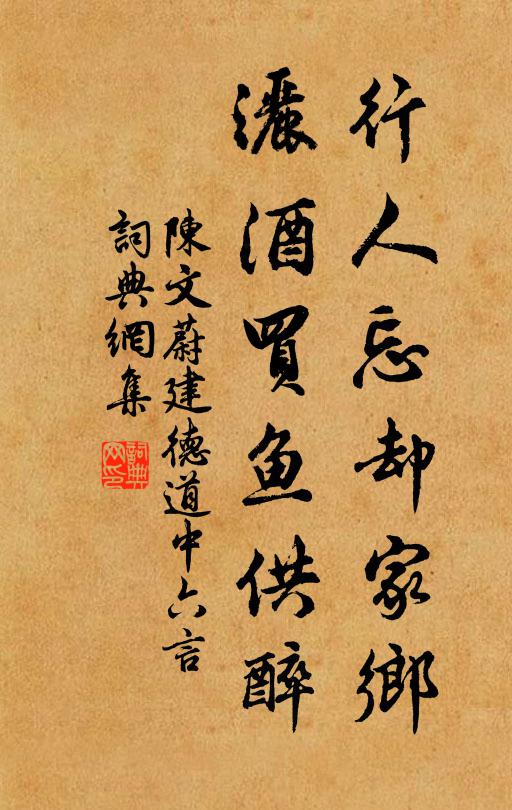 行人忘却家鄉
灑酒買鱼供醉
陳文蔚建德道中六言
詞典網集
詞典
网印